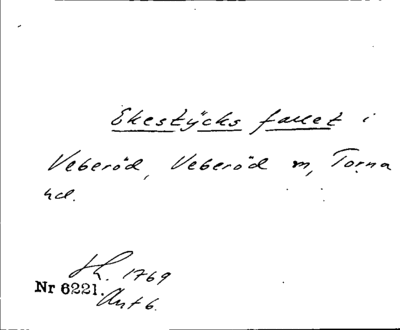 Ekestÿcks fallet i
Veberöd, Veberöd sn, Torna
hd.
Sk. 1769
Nr 6221.
Akt 6.